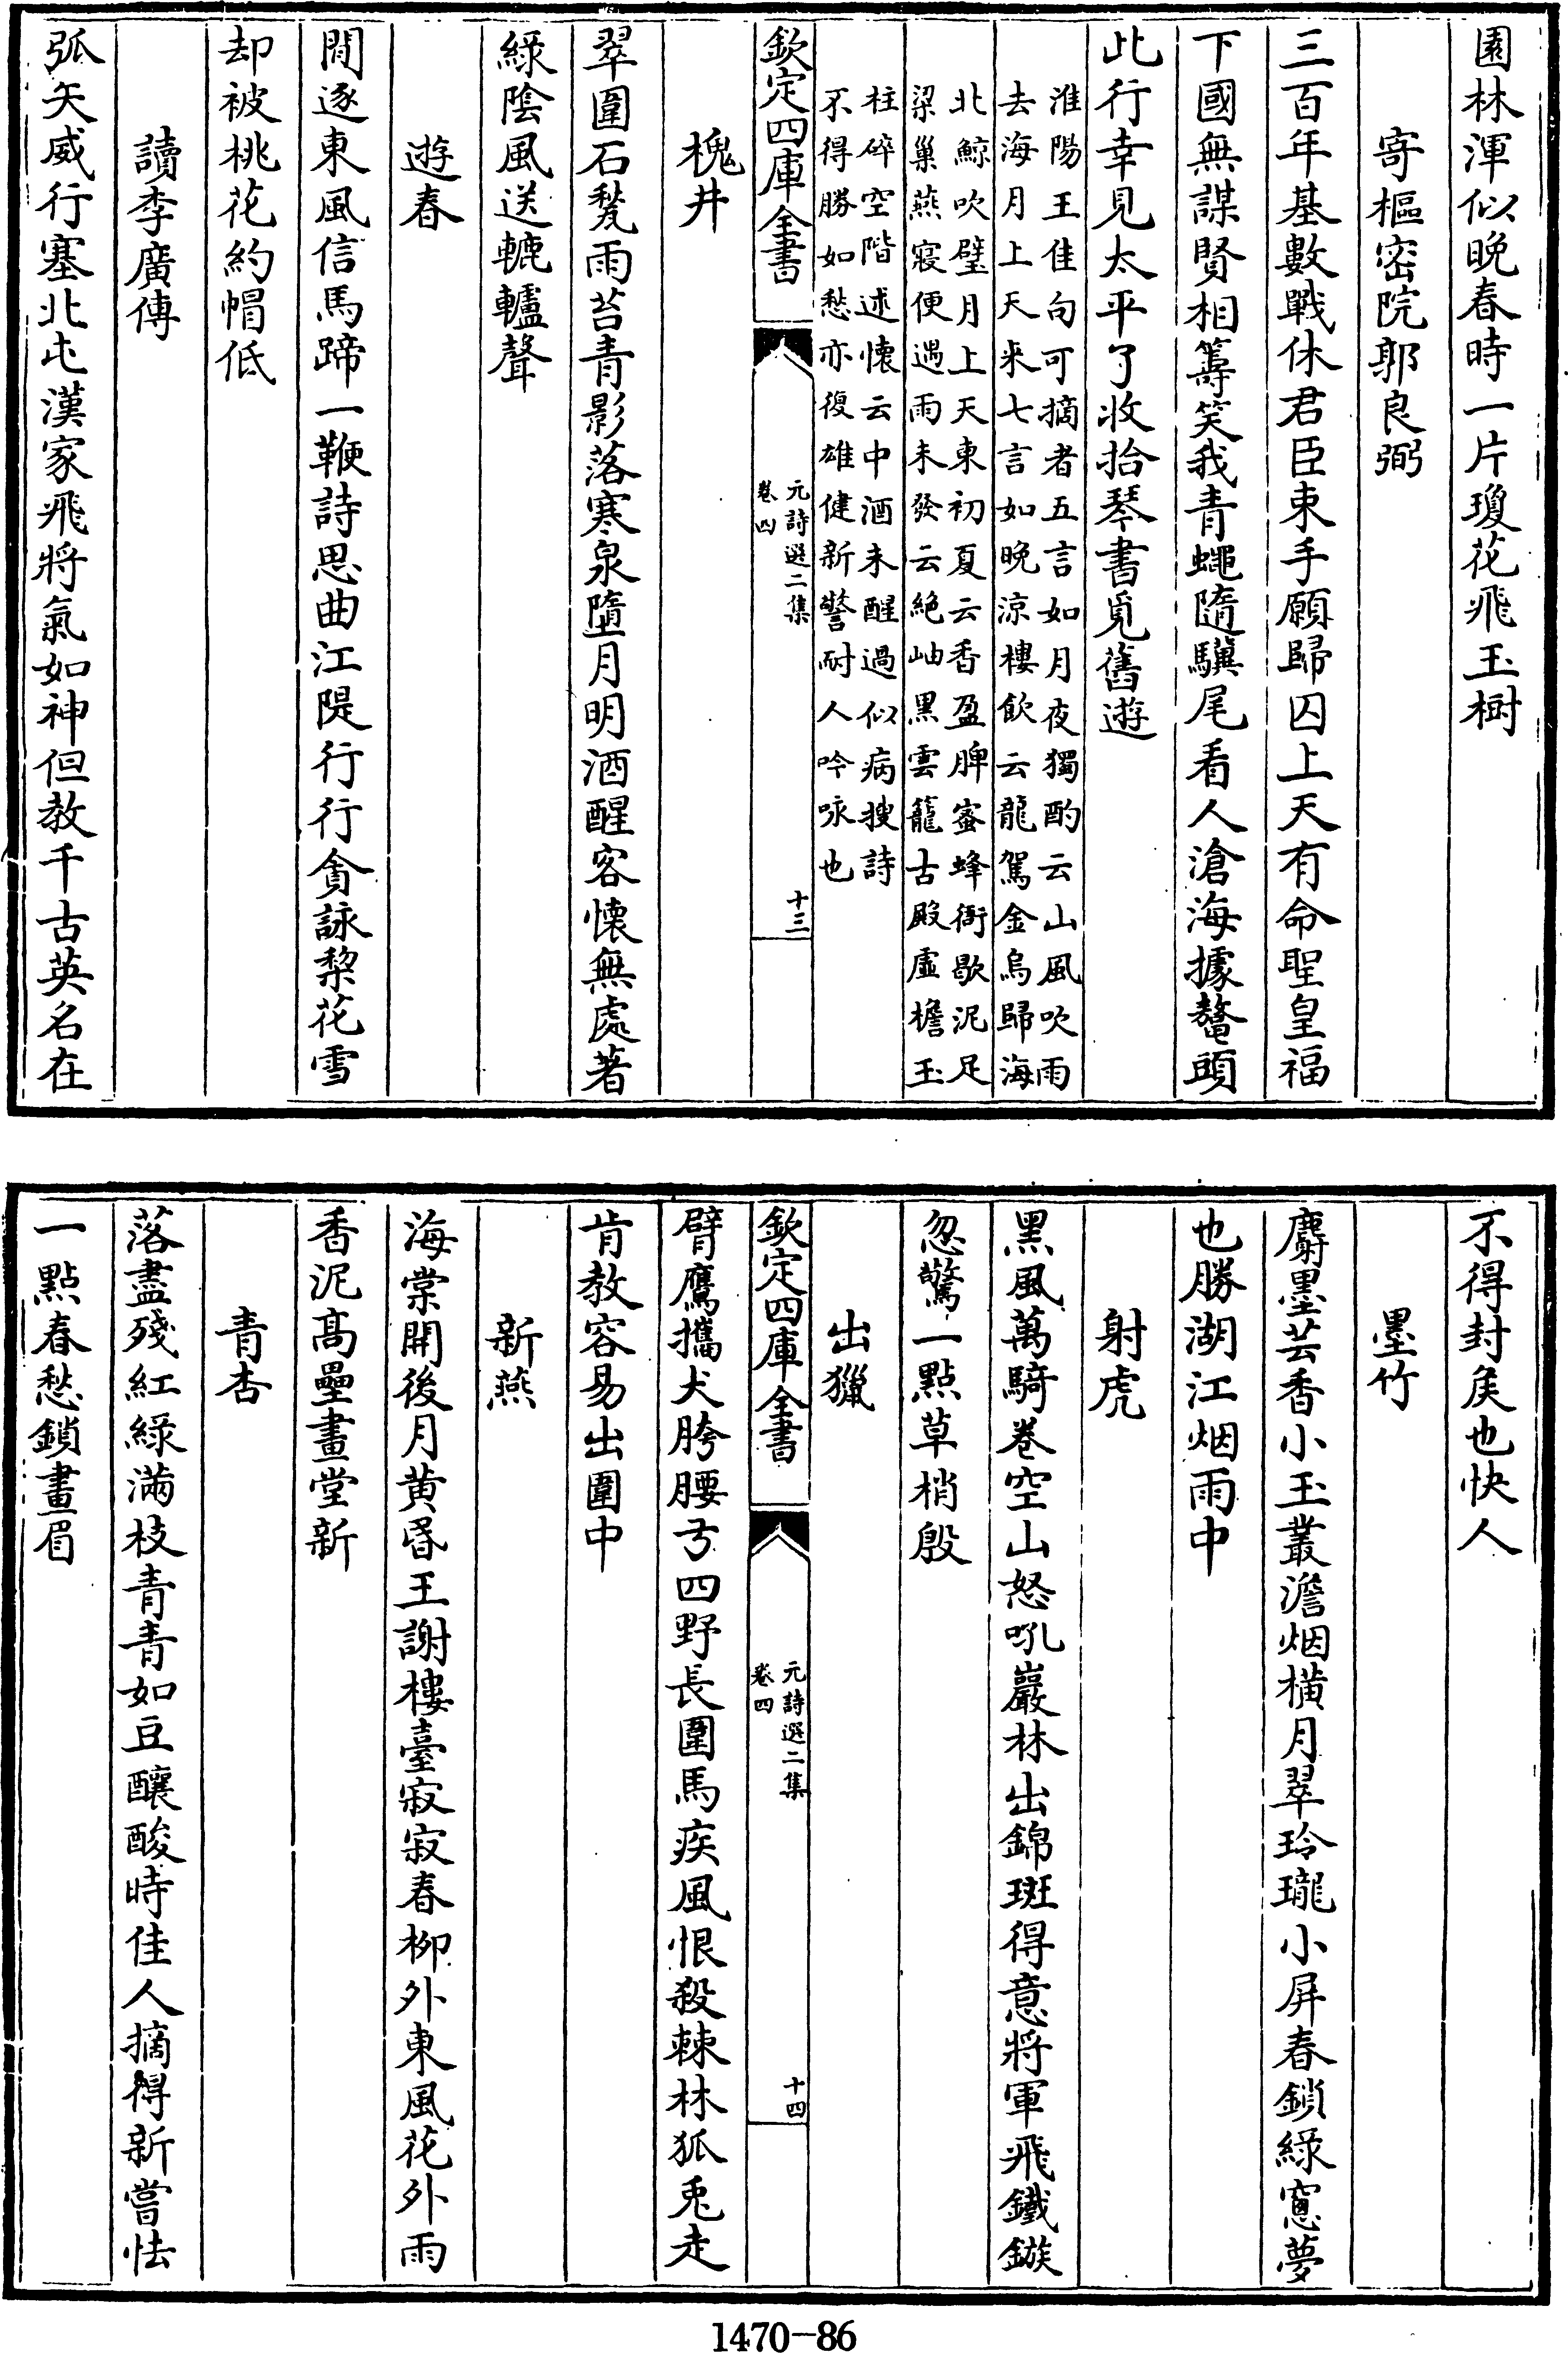 園林渾似晚春時一片瓊花飛玉樹
寄樞密院郭良弼
三百年基數戰休君臣束手願歸囚上天有命聖皇福
下國無謀賢相籌笑我青蠅隨驥尾看人滄海據鼇頭
此行幸見太平了收拾琴書覓舊遊
淮陽王佳句可摘者五言如月夜獨酌云山風吹雨
去海月上天來七言如晚涼樓飲云龍駕金烏歸海
北鯨吹璧月上天東初夏云香盈脾蜜蜂衙歇泥足
梁巢燕寢便遇雨未發云絶岫黑雲籠古殿虛檐玉
柱碎空階述懷云中酒未醒過似病搜詩
不得勝如愁亦復雄健新警耐人吟咏也
欽定四庫全書
元詩選二集
卷四
十三
槐井
翠圍石甃雨苔青影落寒泉墮月明酒醒客懷無處著
綠陰風送轆轤聲
遊春
閒逐東風信馬蹄一鞭詩思曲江隄行行貪詠棃花雪
却被桃花約帽低
讀李廣傳
弧矢威行塞北屯漢家飛將氣如神但教千古英名在
不得封矦也快人
墨竹
麝墨芸香小玉叢澹烟橫月翠玲瓏小屏春鎖綠窻夢
也勝湖江烟雨中
射虎
黑風萬騎卷空山怒吼巖林出錦斑得意將軍飛鐵鏃
忽驚一點草梢殷
出獵
欽定四庫全書
元詩選二集
卷四
十四
臂鷹攜犬胯腰弓四野長圍馬疾風恨殺棘林狐兎走
肯教容易出圍中
新燕
海棠開後月黄昏王謝樓臺寂寂春柳外東風花外雨
香泥髙壘畫堂新
青杏
落盡殘紅綠滿枝青青如豆釀酸時佳人摘得新嘗怯
一點春愁鎖畫眉
1470-86